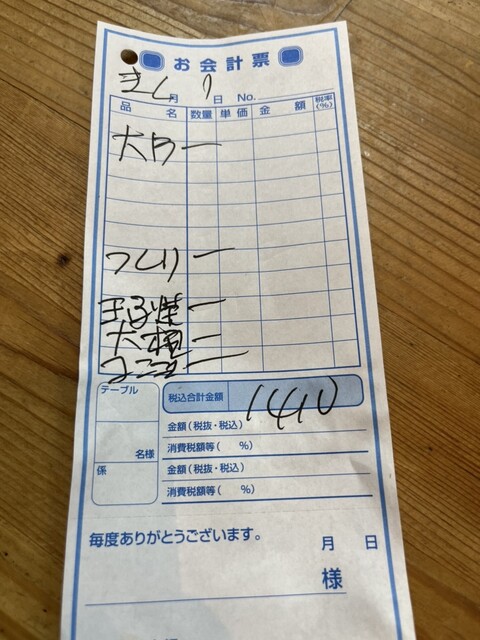 お会計票
月 日 No.
品 名 数量 単価 金 額 税率(%)
大 一
つくり 一
玉子焼 一
大根 一
一
テーブル
税込合計金額 1410
金額(税抜・税込)
名様 消費税額等( %)
係 金額(税抜・税込)
消費税額等( %)
毎度ありがとうございます。
月 日
様